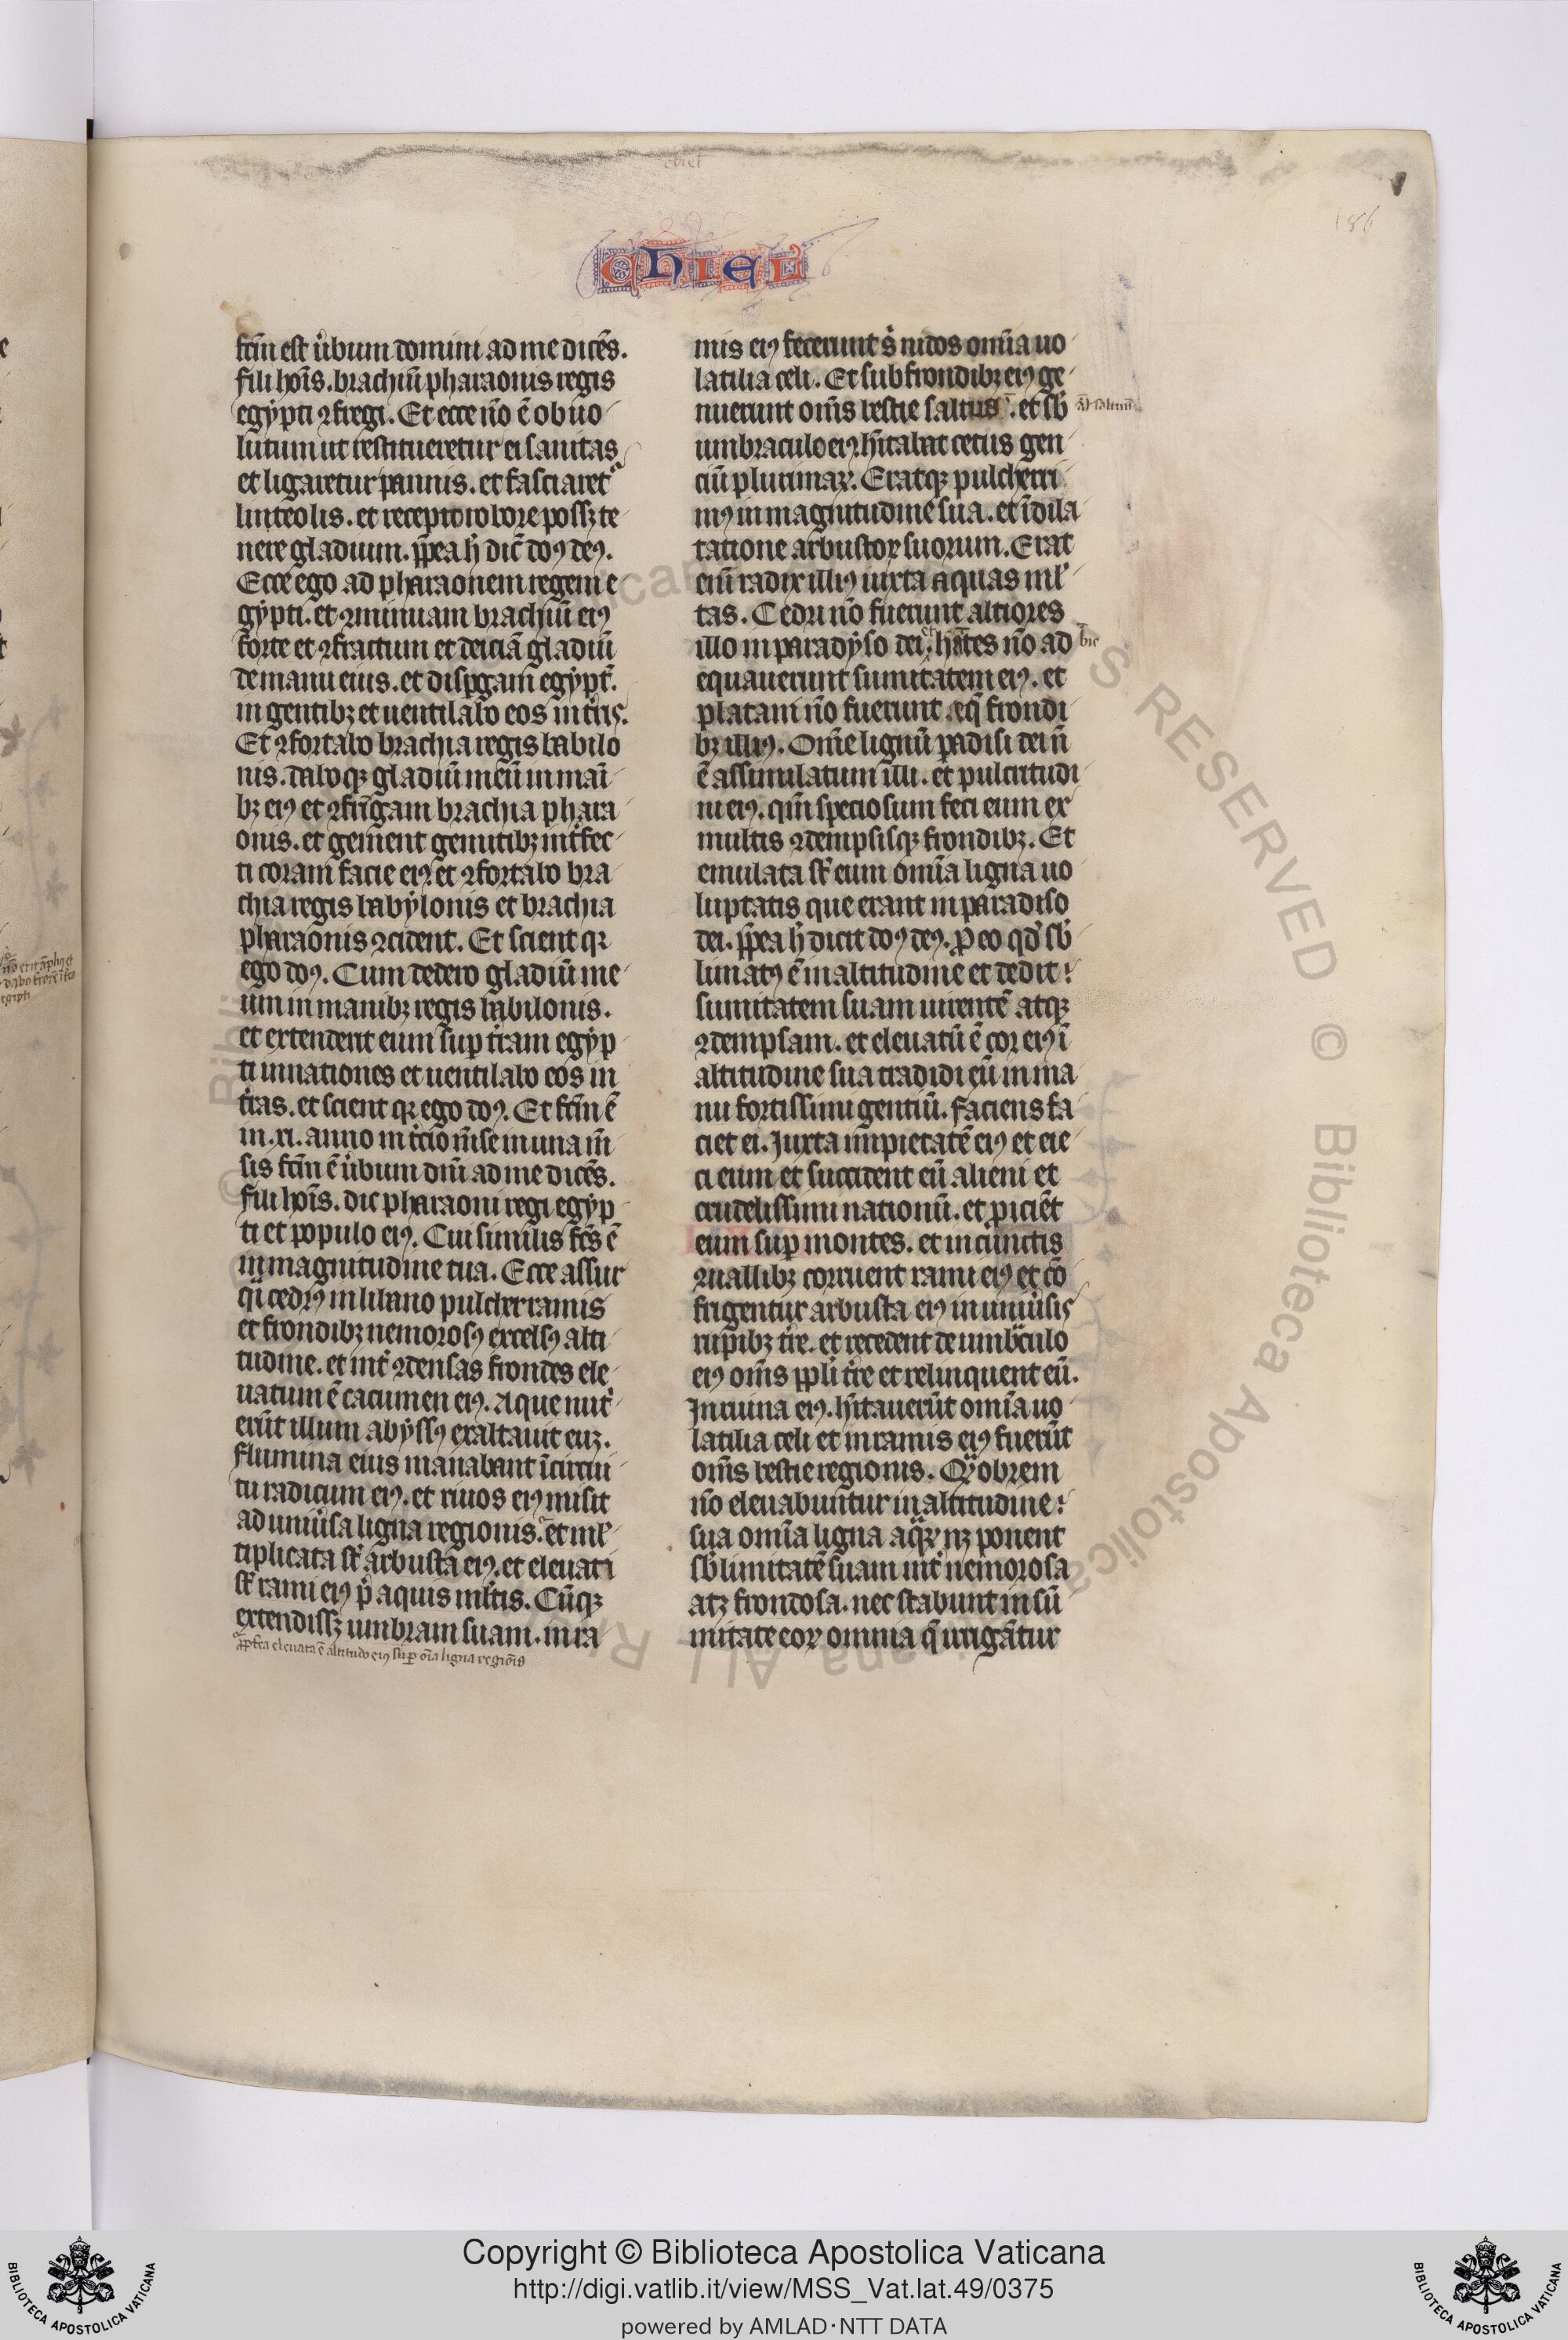 ebiel
186
CHIEL
fc̄m est u̾bum domini ad me dicēs.
Fili hoīs. brachiū pharaonis regis
egypti ꝯfregi. Et ecce nō ē obuo
lutum ut restitueretur ei sanitas
et ligaretur pannis. et fasciaret᷑
linteolis. et recepto robore possꝫ te
nere gladium. ꝓpt̾ea h̾ dic̄ dn̄s deꝰ.
Ecce ego ad pharaonem regem e
gypti. et ꝯminuam brachiū eiꝰ
forte et ꝯfractum et deiciā gladiū
de manu eius. et disꝑgam egypt̄.
in gentibꝫ et uentilabo eos in t̾ris.
Et ꝯfortabo brachia regis babilo
nis. daboqꝫ gladiū meū in mani
bꝫ eiꝰ et ꝯfrīgam brachia phara
onis. et gement gemitibꝫ int̾fec
ti coram facie eiꝰ. et ꝯfortabo bra
chia regis babylonis et brachia
pharaonis ꝯcident. Et scient qꝛ
ego dn̄s. Cum dedero gladiū me
um in manibꝫ regis babilonis.
et extendent eum suꝑ t̾ram egyp
ti in nationes et uentilabo eos in
t̾ras. et scient qꝛ ego dn̄s. Et fc̄m ē
in .xi. anno in t̾cio mēse in una mē
sis fc̄m ē u̾bum dn̄i ad me dicēs.
Fili hoīs. dic pharaoni regi egyp
ti et populo eiꝰ. Cui similis fc̄s ē
in magnitudine tua. Ecce assur
qⁱ cedrꝰ in libano pulcher ramis
et frondibꝫ nemorosꝰ excelsꝰ alti
tudine. et int̾ ꝯdensas frondes ele
uatum ē cacumen eiꝰ. Aque nut̾
erūt illum abyssꝰ exaltauit euꝫ.
Flumina eius manabant ī circui
tu radicum eiꝰ. et riuos eiꝰ misit
ad uniu̾sa ligna regionis. et ml̾
tiplicata st̄ arbusta eiꝰ. et eleuati
st̄ rami eiꝰ p̾ aquis ml̾tis. Cūqꝫ
extendissꝫ umbram suam. in ra
ꝓpt̾ea eleuata ē altitudo eiꝰ suꝑ oīa ligna regiōis
mis eiꝰ fecerunt s̾ nidos omīa uo
latilia celi. Et sub frondibꝫ eiꝰ ge
nuerunt om̄s bestie saltus. et sb̾
umbraculo eiꝰ hītabat cetus gen
ciū plurimaꝝ. Eratqꝫ pulcherri
mꝰ in magnitudine sua. et ī dila
tatione arbustoꝝ suorum. Erat
enī radix illiꝰ iuxta aquas ml̾
tas. Cedri nō fuerunt altiores
illo in paradyso dei. hītes nō ad
equauerunt sumitatem eiꝰ. et
platani nō fuerunt eq̄ frondi
bꝫ illiꝰ. Om̄e lignū ꝑadisi dei n̄
ē assimulatum illi. et pulcritudi
ni eiꝰ. qm̄ speciosum feci eum ex
multis ꝯdempsisqꝫ frondibꝫ. Et
emulata st̄ eum omīa ligna uo
luptatis que erant in paradiso
dei. ꝓpt̾ea h̾ dicit dn̄s deꝰ. ꝓ eo qd̾ sb̾
limatꝰ ē in altitudine et dedit
sumitatem suam uirentē atqꝫ
ꝯdempsam. et eleuatū ē cor eiꝰ ī
altitudine sua tradidi eū in ma
nu fortissimi gentiū. Faciens fa
ciet ei. Juxta impietatē eiꝰ et eie
ci eum et succident eū alieni et
crudelissimi nationū. et ꝓiciēt
eum suꝑ montes. et in cunctis
ꝯuallibꝫ corruent rami eiꝰ et cō
frigentur arbusta eiꝰ in uniu̾sis
rupibꝫ t̾re. et recedent de umbᵃculo
eiꝰ om̄s ppl̾i t̾re et relinquent eū.
In ruina eiꝰ. hītauerūt omīa uo
latilia celi et in ramis eiꝰ fuerūt
om̄s bestie regionis. Qᵃobrem
nō eleuabuntur in altitudine
sua omīa ligna aqᵃꝝ nꝫ ponent
sb̾limitatē suam int̾ nemorosa
atꝫ frondosa. nec stabunt in sū
mitate eoꝝ omnia q̄ irrigātur
Copyright © Biblioteca Apostolica Vaticana
http://digi.vatlib.it/view/MSS_Vat.lat.49/0375
powered by AMLAD·NTT DATA
BIBLIOTECA APOSTOLICA VATICANA
BIBLIOTECA APOSTOLICA VATICANA